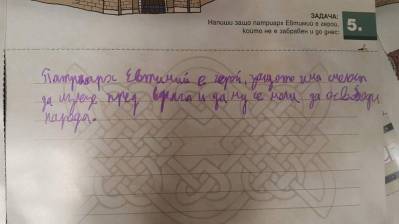 ЗАДАЧА:
Напиши защо патриарх Евтимий е герой,
който не е забравен и до днес.
5.
Патриарх Евтимий е герой, защото има смелост
да излезе пред врага и да му се моли за освободи
народа.